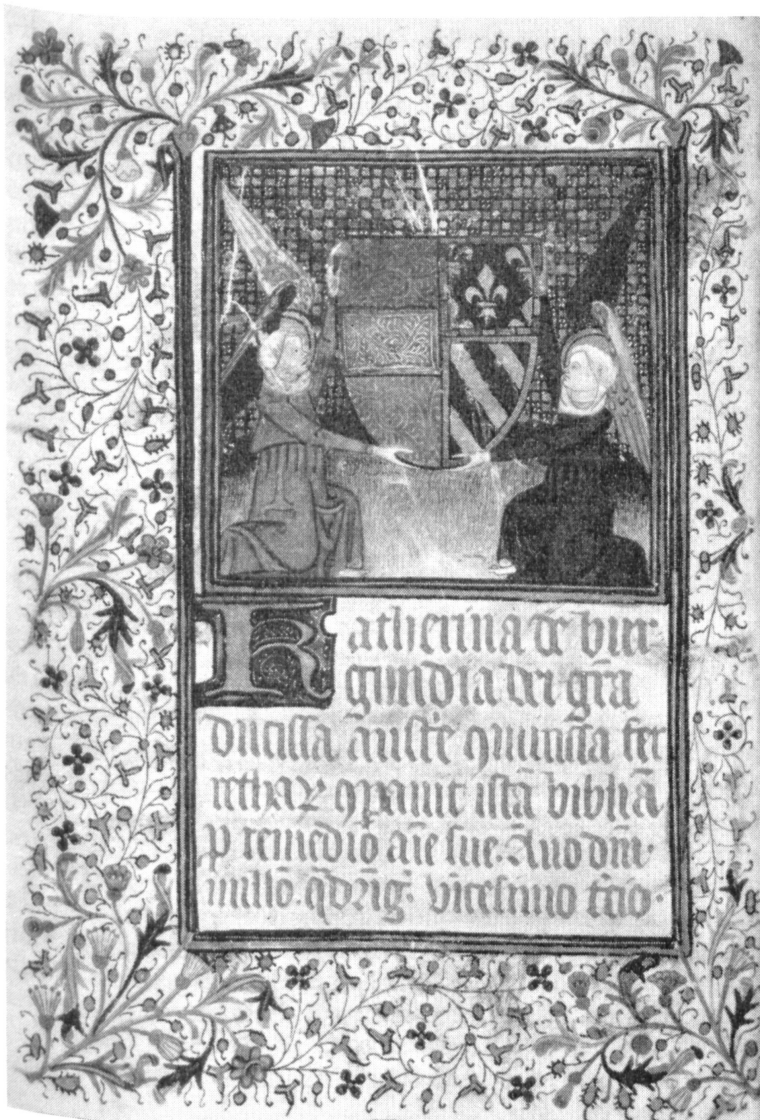 Katherina de bur
gundia dei gra
ducissa auste 9mitissa fer
rethaꝝ 9pauit istā bibliā
p remedio aīe sue. Anno dm̄.
millo. qdrig. vicesimo tcio.